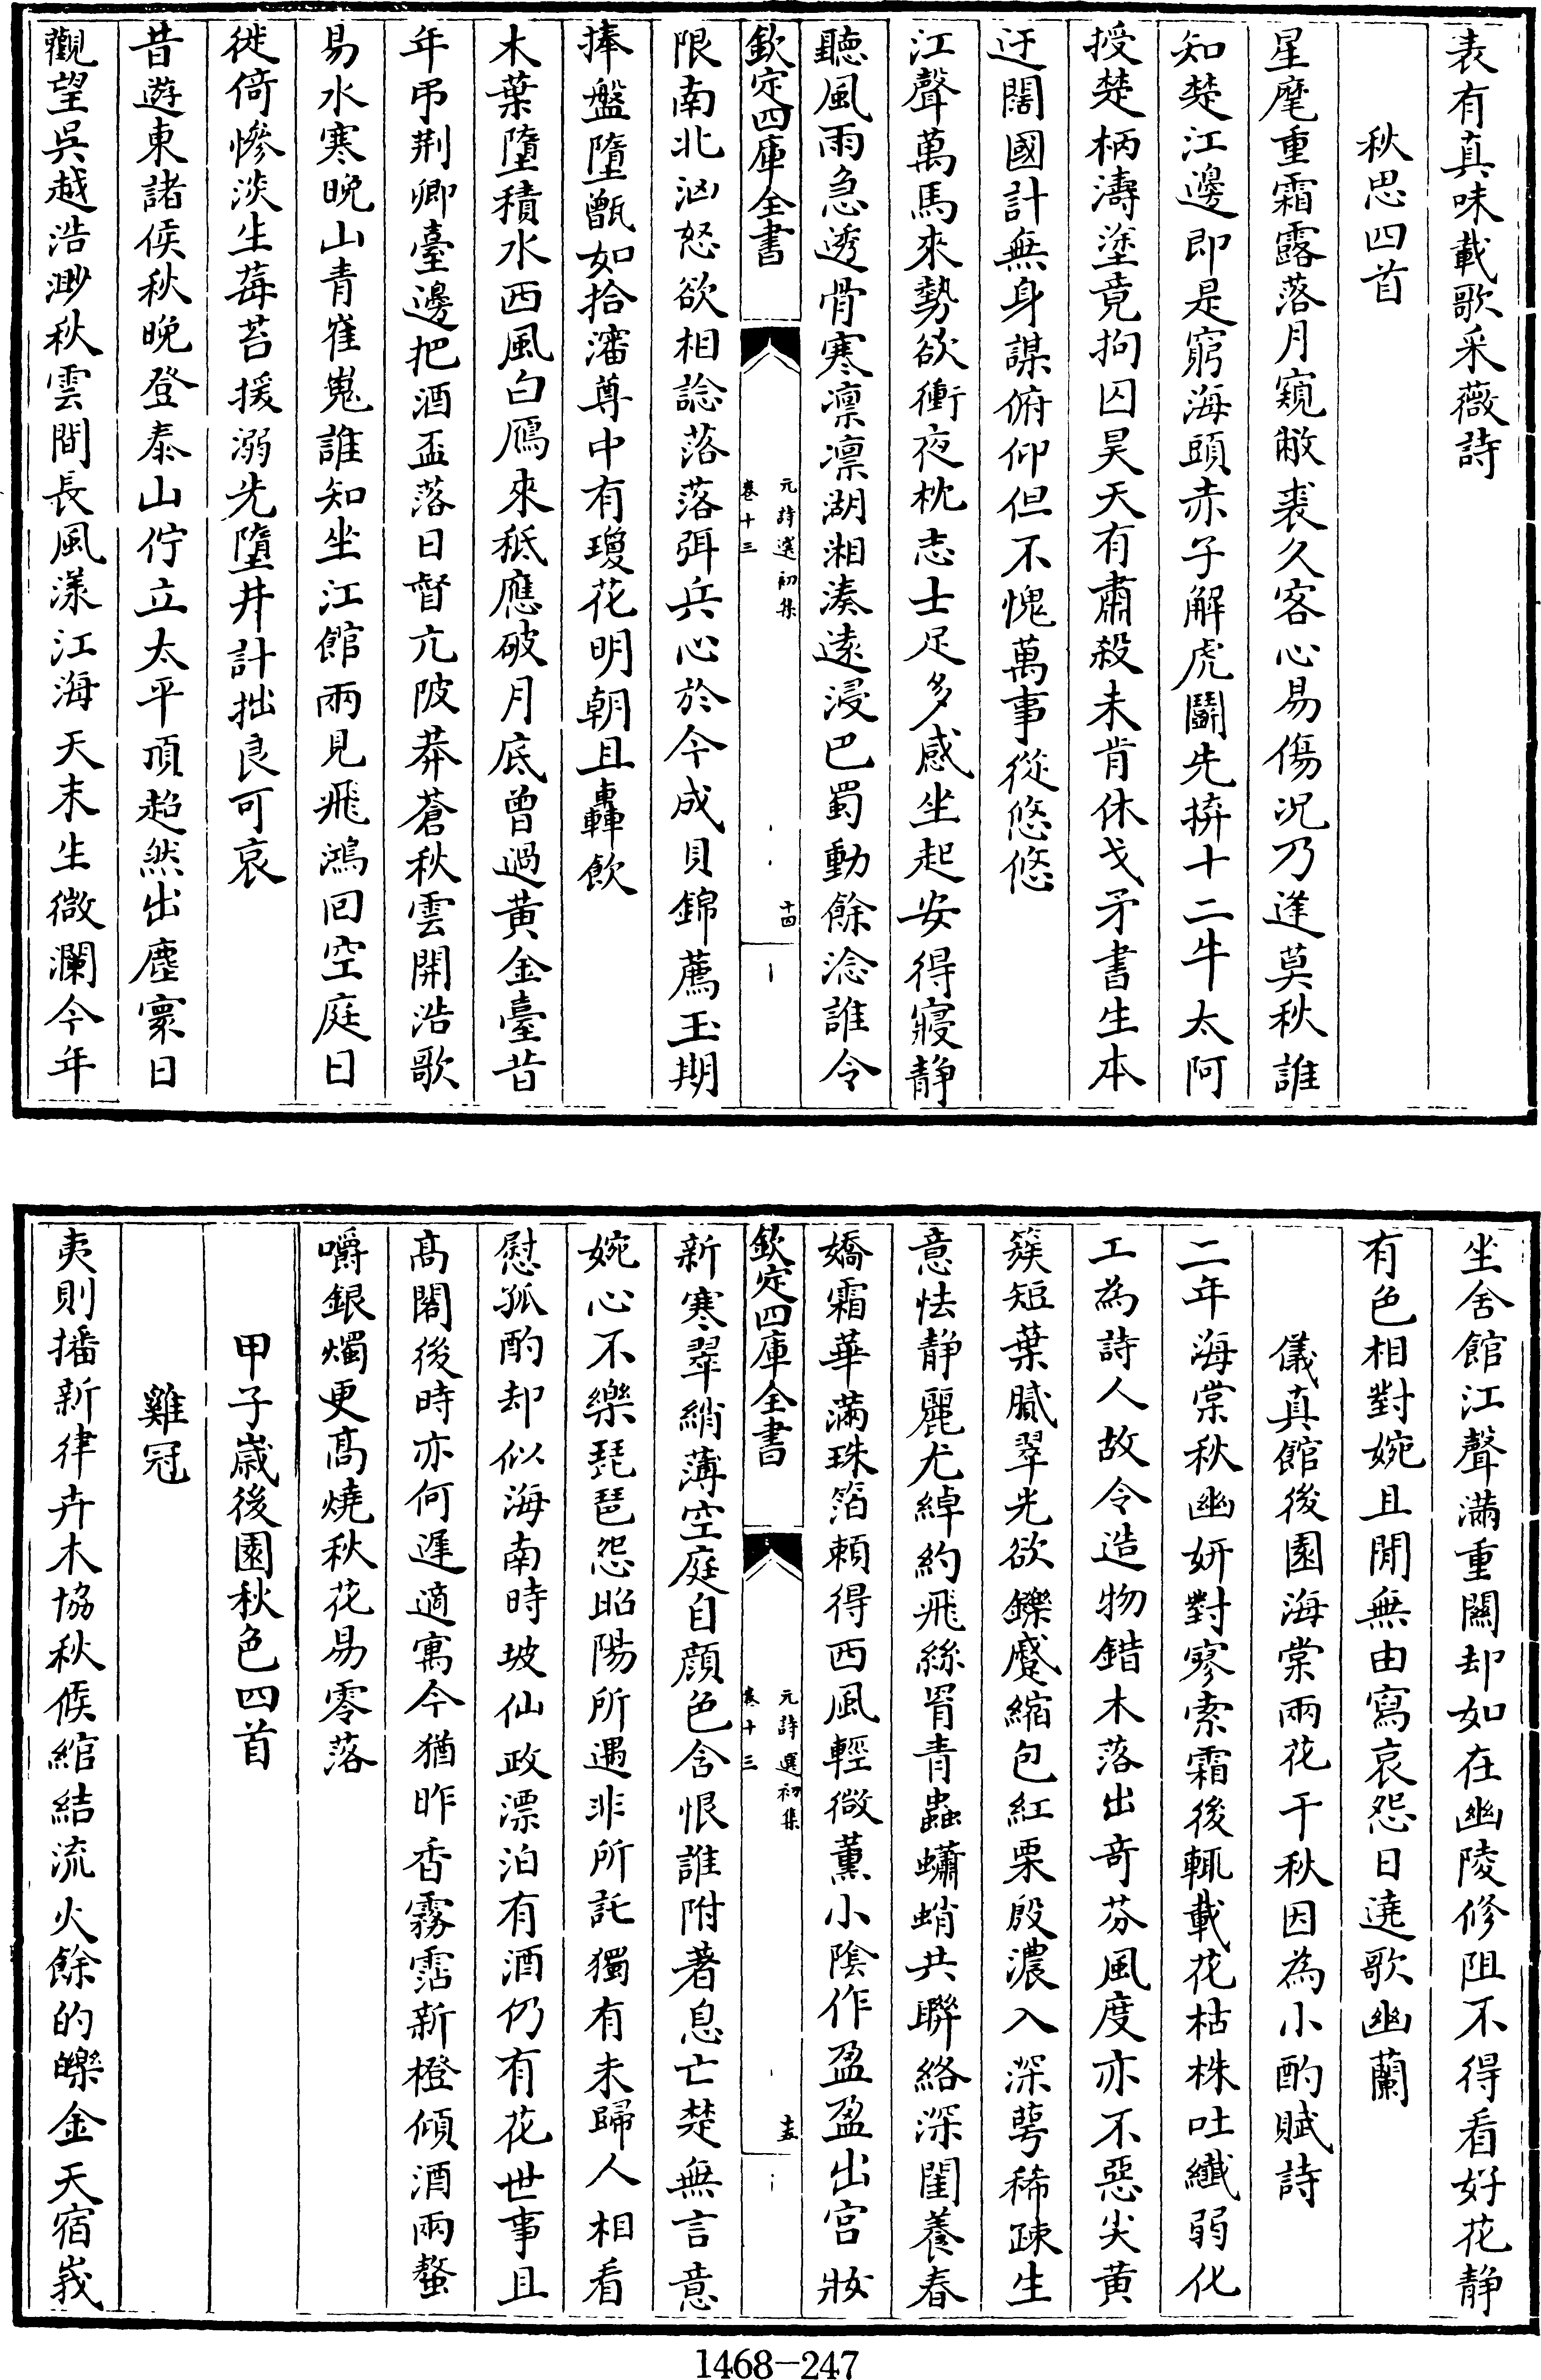 表有真味載歌采薇詩
秋思四首
星麾重霜露落月窺敝裘久客心易傷况乃逢莫秋誰
知楚江邊即是窮海頭赤子解虎鬬先拚十二牛太阿
授楚柄濤塗竟拘囚昊天有肅殺未肯休戈矛書生本
迂闊國計無身謀俯仰但不愧萬事從悠悠
江聲萬馬來勢欲衝夜枕志士足多感坐起安得寢静
聽風雨急透骨寒凛凛湖湘湊遠浸巴蜀動餘淰誰令
欽定四庫全書
元詩選初集
卷十三
十四
限南北汹怒欲相諗落落弭兵心於今成貝錦薦玉期
捧盤墮甑如拾瀋尊中有瓊花明朝且轟飲
木葉墮積水西風白鴈來秪應破月底曾過黄金臺昔
年弔荆卿臺邊把酒盃落日督亢陂莽蒼秋雲開浩歌
易水寒晚山青崔嵬誰知坐江館兩見飛鴻回空庭日
徙倚慘淡生莓苔援溺先墮井計拙良可哀
昔遊東諸侯秋晚登泰山佇立太平頂超然出塵寰日
觀望吳越浩渺秋雲間長風漾江海天末生微瀾今年
坐舍館江聲滿重關却如在幽陵修阻不得看好花静
有色相對婉且閒無由寫哀怨日遶歌幽蘭
儀真館後園海棠兩花于秋因為小酌賦詩
二年海棠秋幽妍對寥索霜後輒載花枯株吐纖弱化
工為詩人故令造物錯木落出奇芬風度亦不惡尖黄
簇短葉膩翠光欲鑠蹙縮包紅粟殷濃入深萼稀疎生
意怯静麗尤綽約飛絲罥青蟲蠨蛸共聯絡深閨養春
嬌霜華滿珠箔頼得西風輕微薫小陰作盈盈出宫妝
欽定四庫全書
元詩選初集
卷十三
十五
新寒翠綃薄空庭自顔色含恨誰附著息亡楚無言意
婉心不樂琵琶怨昭陽所遇非所託獨有未歸人相看
慰孤酌却似海南時坡仙政漂泊有酒仍有花世事且
髙閣後時亦何遲適寓今猶昨香霧霑新橙傾酒兩螯
嚼銀燭更髙燒秋花易零落
甲子歳後園秋色四首
雞冠
夷則播新律卉木協秋候綰結流火餘的皪金天宿峩
1468-247